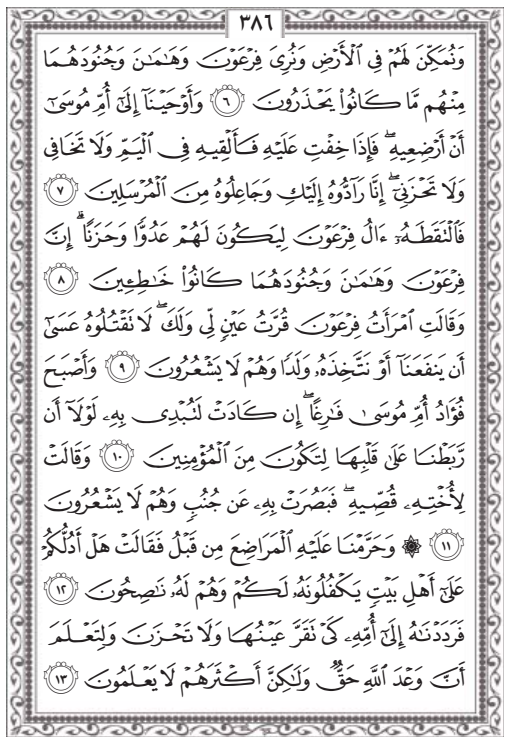 ٣٨٦
وَنُمَكِّنَ لَهُمْ فِي ٱلْأَرْضِ وَنُرِيَ فِرْعَوْنَ وَهَٰمَٰنَ وَجُنُودَهُمَا
مِنْهُم مَّا كَانُوا۟ يَحْذَرُونَ ٦ وَأَوْحَيْنَآ إِلَىٰٓ أُمِّ مُوسَىٰٓ
أَنْ أَرْضِعِيهِ ۖ فَإِذَا خِفْتِ عَلَيْهِ فَأَلْقِيهِ فِي ٱلْيَمِّ وَلَا تَخَافِي
وَلَا تَحْزَنِيٓ ۖ إِنَّا رَآدُّوهُ إِلَيْكِ وَجَاعِلُوهُ مِنَ ٱلْمُرْسَلِينَ ٧
فَٱلْتَقَطَهُۥٓ ءَالُ فِرْعَوْنَ لِيَكُونَ لَهُمْ عَدُوًّا وَحَزَنًا ۗ إِنَّ
فِرْعَوْنَ وَهَٰمَٰنَ وَجُنُودَهُمَا كَانُوا۟ خَٰطِـِٔينَ ٨
وَقَالَتِ ٱمْرَأَتُ فِرْعَوْنَ قُرَّتُ عَيْنٍ لِّي وَلَكَ ۖ لَا تَقْتُلُوهُ عَسَىٰٓ
أَن يَنفَعَنَآ أَوْ نَتَّخِذَهُۥ وَلَدًا وَهُمْ لَا يَشْعُرُونَ ٩ وَأَصْبَحَ
فُؤَادُ أُمِّ مُوسَىٰ فَٰرِغًا ۖ إِن كَادَتْ لَتُبْدِي بِهِۦ لَوْلَآ أَن
رَّبَطْنَا عَلَىٰ قَلْبِهَا لِتَكُونَ مِنَ ٱلْمُؤْمِنِينَ ١٠ وَقَالَتْ
لِأُخْتِهِۦ قُصِّيهِ ۖ فَبَصُرَتْ بِهِۦ عَن جُنُبٍ وَهُمْ لَا يَشْعُرُونَ
١١ ۞ وَحَرَّمْنَا عَلَيْهِ ٱلْمَرَاضِعَ مِن قَبْلُ فَقَالَتْ هَلْ أَدُلُّكُمْ
عَلَىٰٓ أَهْلِ بَيْتٍ يَكْفُلُونَهُۥ لَكُمْ وَهُمْ لَهُۥ نَٰصِحُونَ ١٢
فَرَدَدْنَٰهُ إِلَىٰٓ أُمِّهِۦ كَيْ تَقَرَّ عَيْنُهَا وَلَا تَحْزَنَ وَلِتَعْلَمَ
أَنَّ وَعْدَ ٱللَّهِ حَقٌّ وَلَٰكِنَّ أَكْثَرَهُمْ لَا يَعْلَمُونَ ١٣